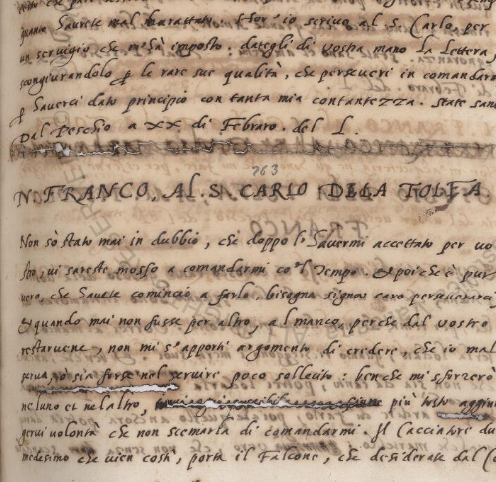 Havete mal barattato. Hor' io scrivo al S. Carlo, per
un servigio che m'ha imposto. dategli di vostra mano la lettera,
scongiurandolo per le rare sue qualità, che perseveri in comandarmi
per havervi dato principio con tanta mia contentezza. state sano
Dal Peschio a XX di Febraro. del L.
263
N. FRANCO, AL S. CARLO DELA TOLFA
Non sò stato mai in dubbio, che doppo l'havermi accettato per vo
stro, vi sareste mosso a comandarmi co'l tempo. Et poi che è pur
vero, che havete comincio a farlo, bisogna signor caro perseverarci
Et quando mai non fusse per altro, al manco, perche dal vostro
restarvene, non mi s'apporti argomento di credere, che io mal
serva, ò sia forse nel servire poco sollecito: ben che mi sforzerò
ne l'uno et ne l'altro, più tosto
volontà che non scemarla di comandarmi. Il Cacciatore du
medesimo che vien costì, porta il Falcone, che desiderate dal